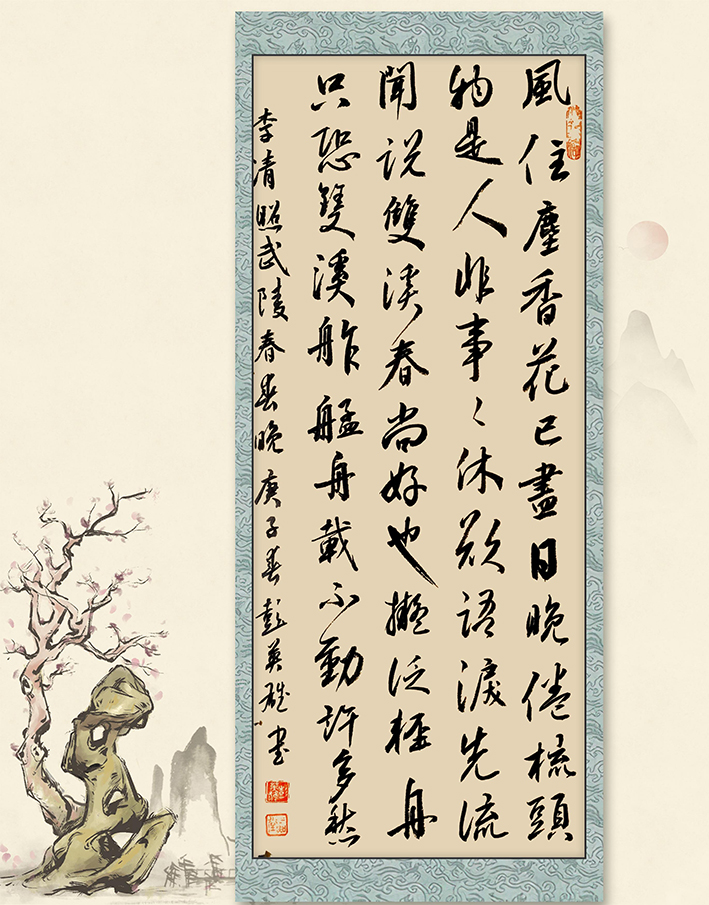 風住塵香花已盡日晚倦梳頭
物是人非事〻休欲語淚先流
聞説雙溪春尚好也擬泛輕舟
只恐雙溪舴艋舟載不動許多愁
李清照武陵春春晚庚子春彭英雄書